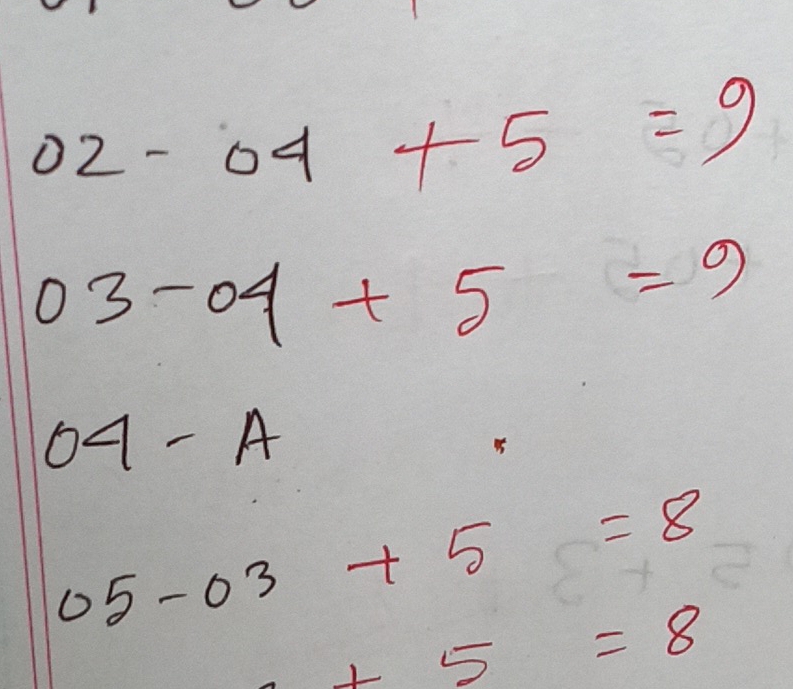 02 - 04 + 5 = 9
03 - 04 + 5 = 9
04 - A
05 - 03 + 5 = 8
+ 5 = 8